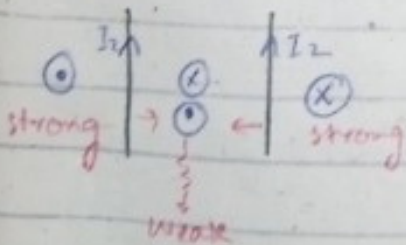 I₂ I₂
x
x
strong strong
weak